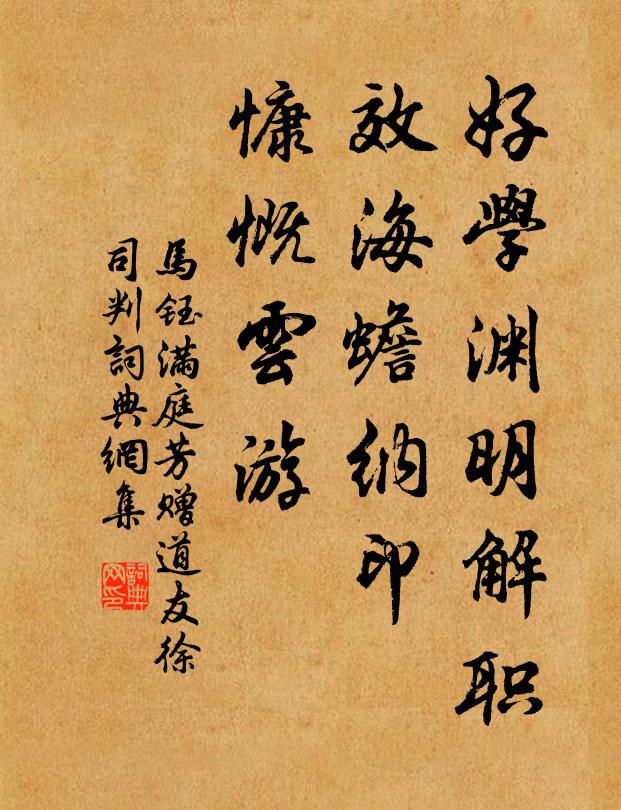 好學渊明解职
效海蟾纳印
慷慨雲游
馬鈺满庭芳赠道友徐
司判詞典網集
詞典网印